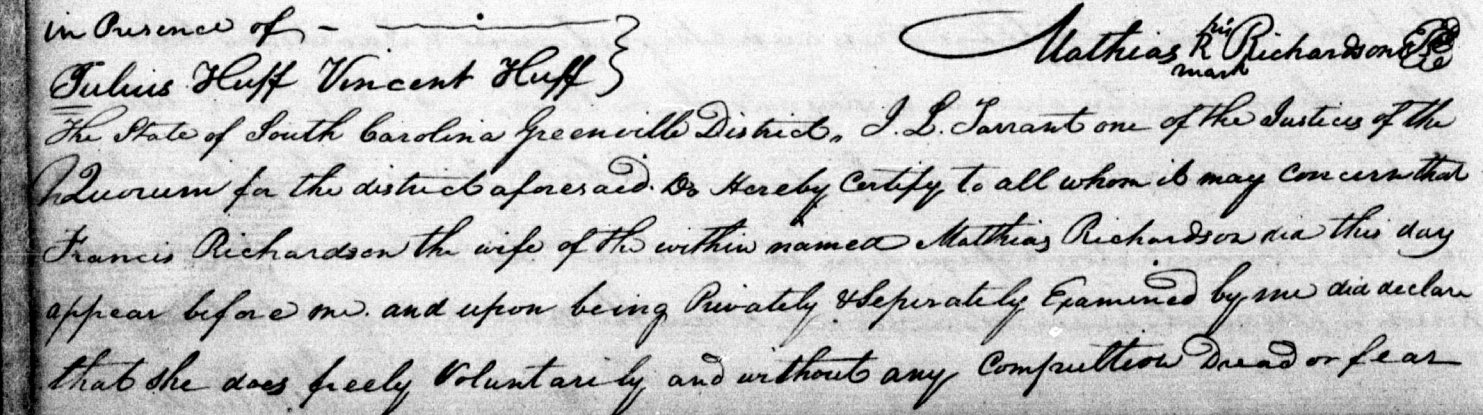 in Presence of - 
Mathias his R mark Richardson
Julius Huff Vincent Huff }
The State of South Carolina Greenville District, I. L. Tarrant one of the Justices of the
Quorum for the district aforesaid. Do Hereby Certify to all whom it may Concern that
Francis Richardson the wife of the within named Mathias Richardson did this day
appear before me. and upon being Privately & Seperately Examined by me did declare
that she does freely Voluntarily and without any Compultion Dread or fear